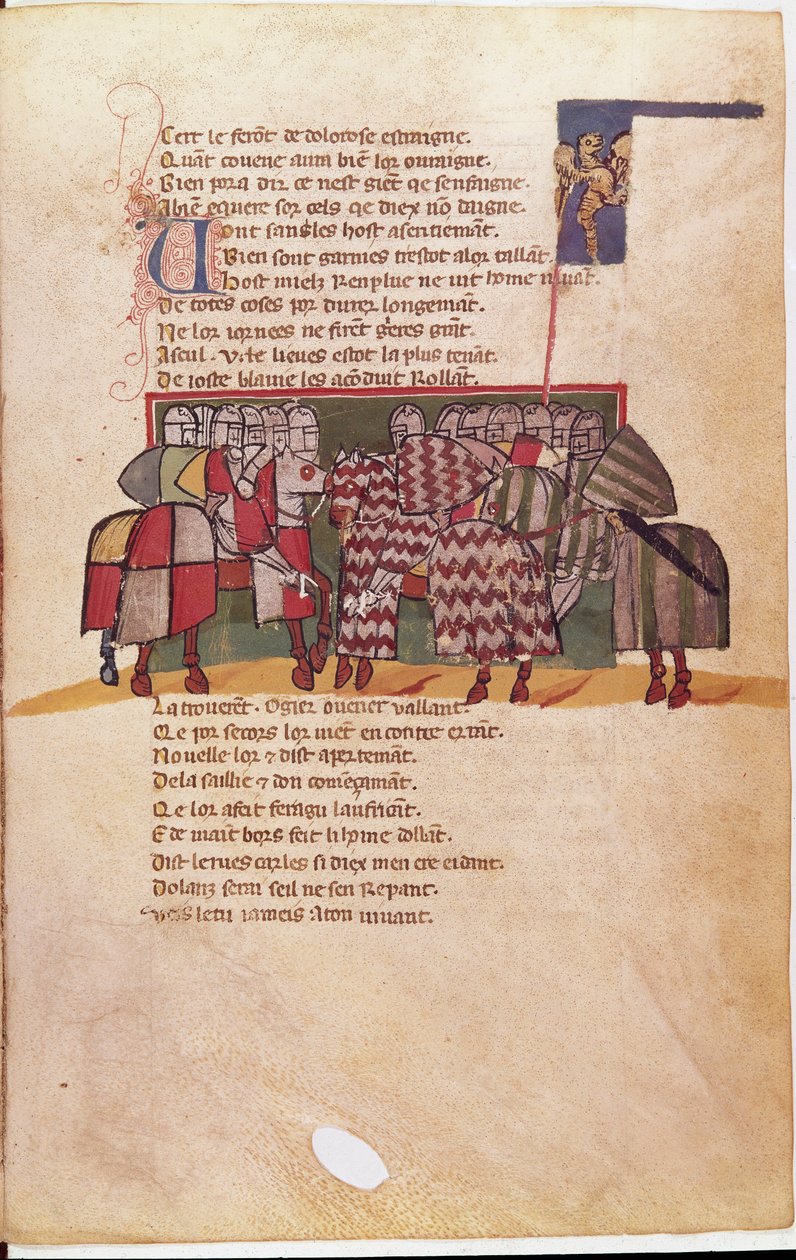 Cert le feront de dolorose estraigne.
Quāt covene aura biē lor ouraigne.
Bien pora dir ce nest giēt qe senfaigne.
A biē equere sor cels qe diex nō daigne.
Vont sen les host asentiemāt.
Bien sont garnies trestot alor tallāt.
Lhost mielz Renplue ne vit home vivāt.
De totes coses por durer longemāt.
Ne lor iornees ne firēt gēres grāt.
Ascul. v. le lieues estot la plus tenāt.
De ioste blavie les acōduit Rollāt.
La troverēt. Ogier ovener vallant.
Qe por secors lor viēt en
Novelle lor 7 dist apertemāt.
Dela saillie 7 don comēçamāt.
Qe lor a feit feragu laufricāt.
E de maīt bors feit li home dollāt.
Dist lerues carles si diex men cre eidant.
Dolanz serai seil ne sen Repant.
letu iameis a ton vivant.